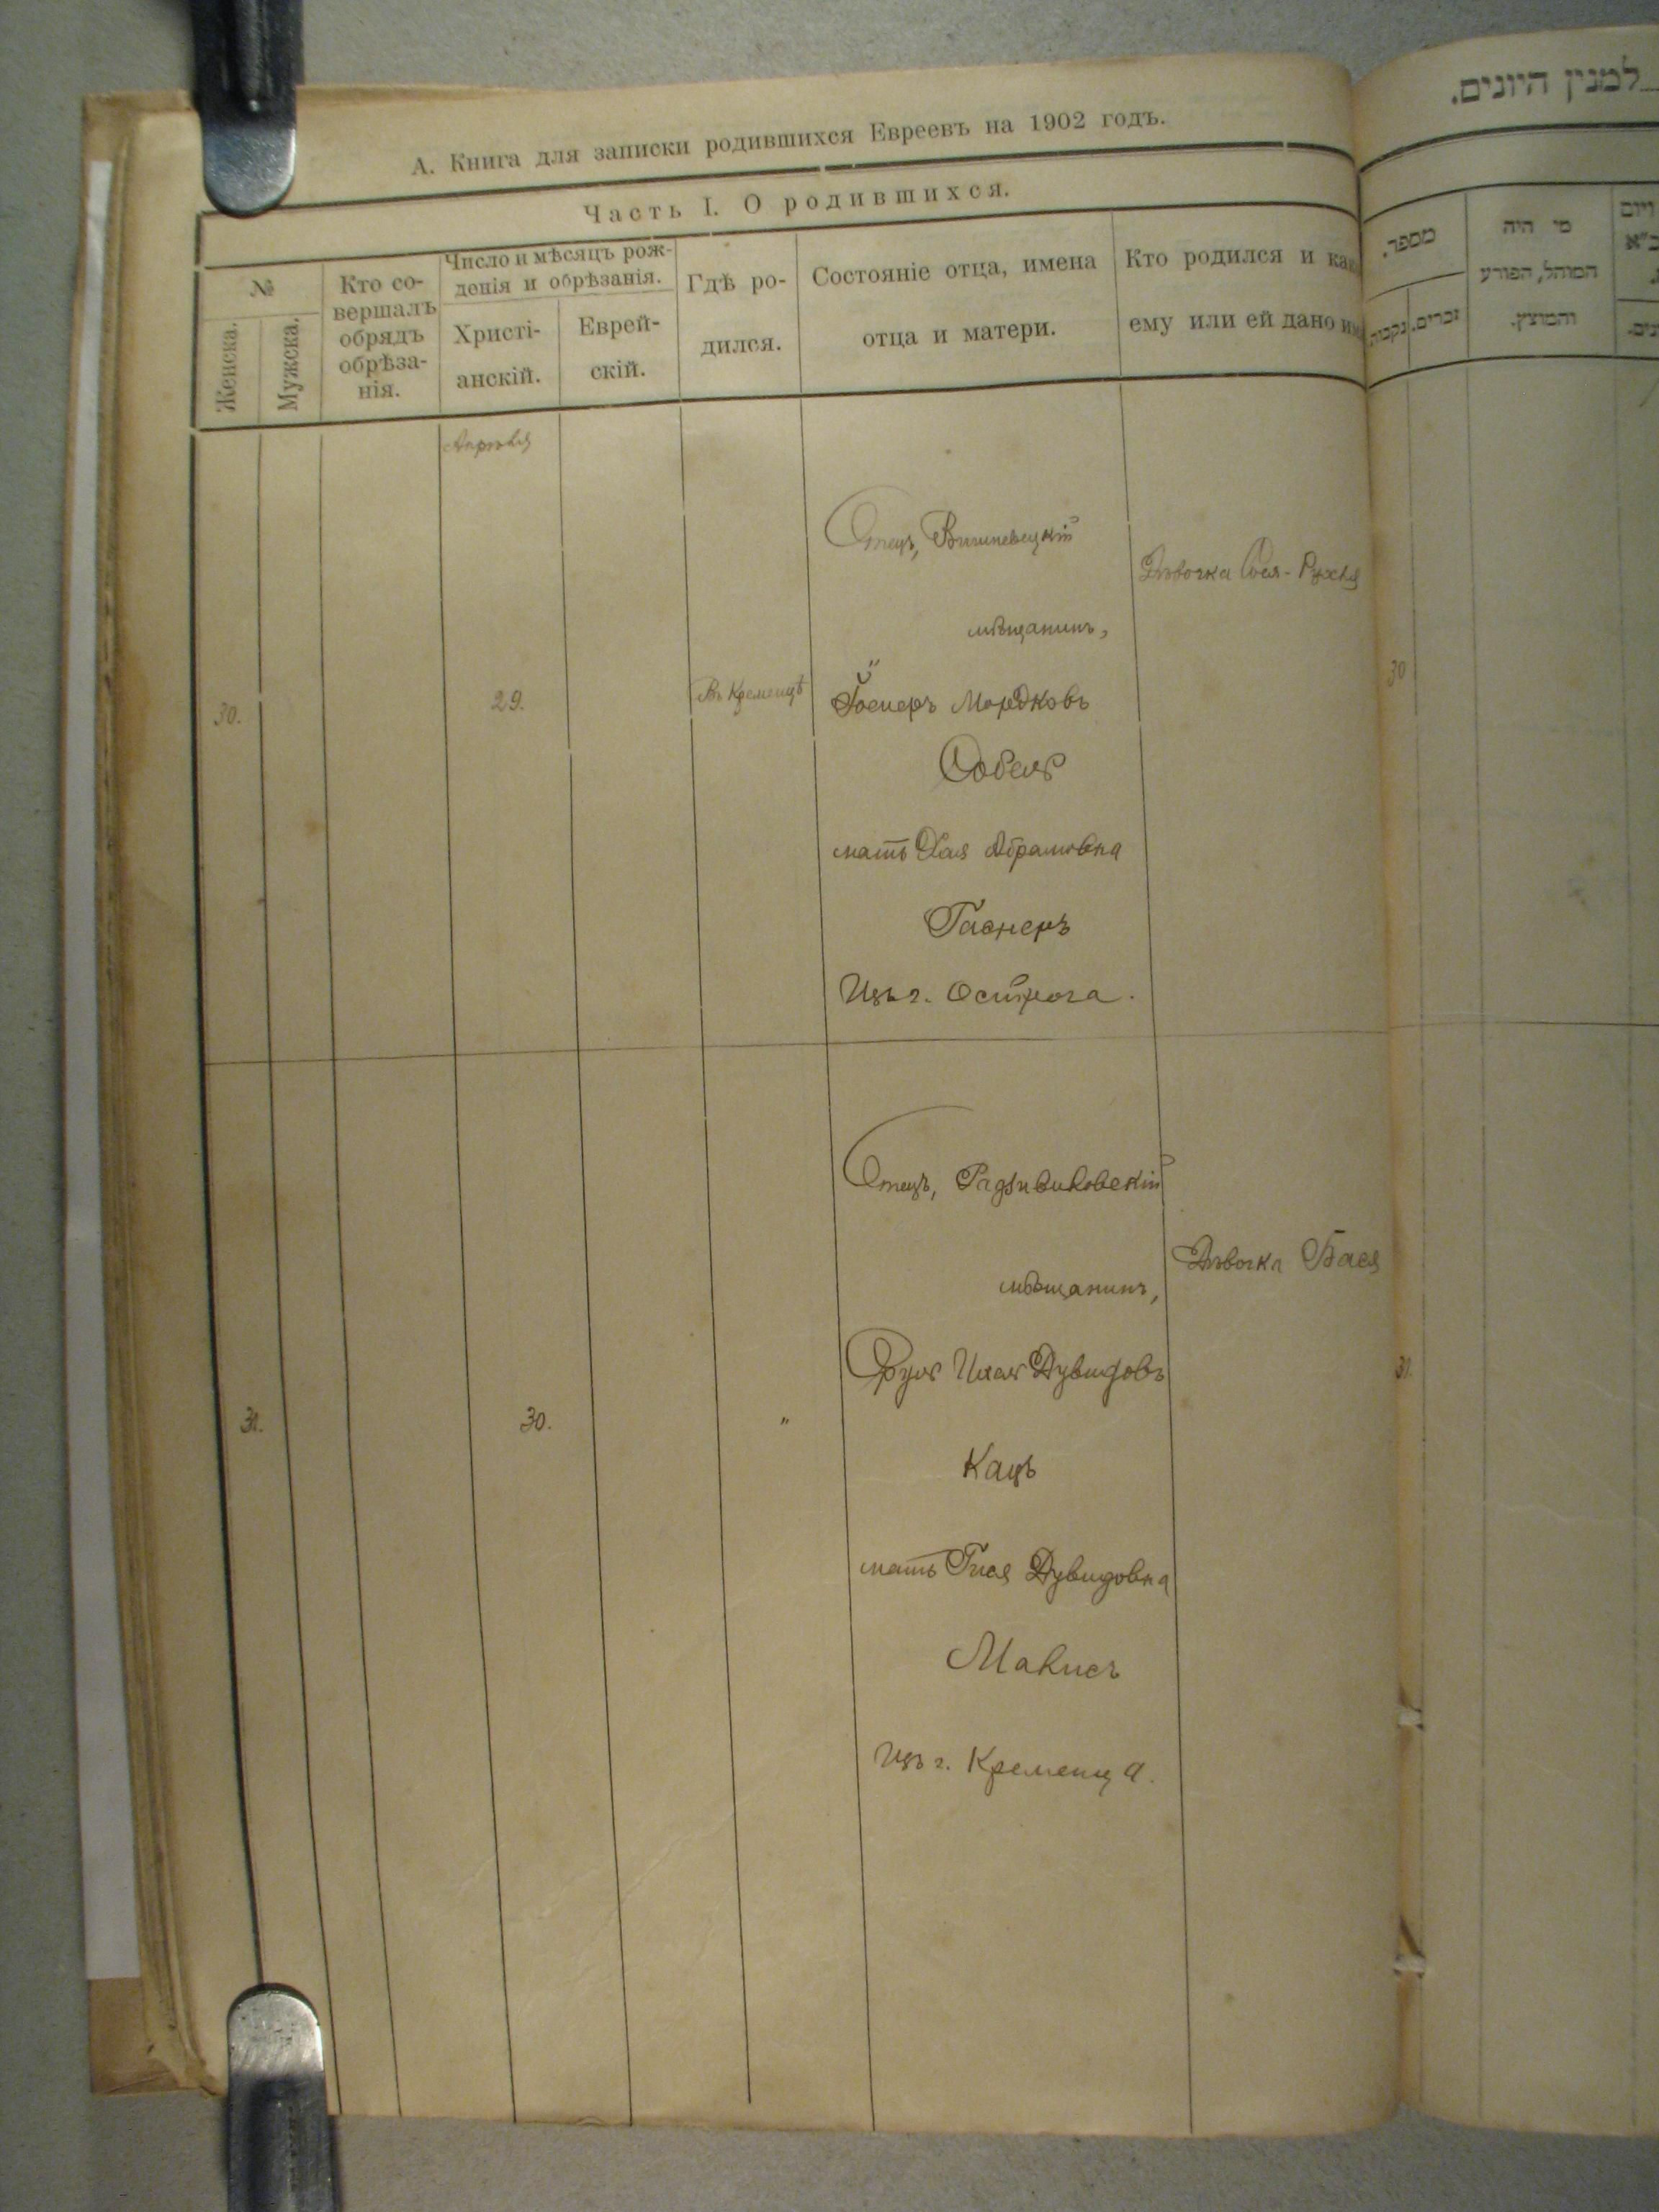 А. Книга для записки родившихся Евреевъ на 1902 годъ.
Часть I. О родившихся.
№
Женска.
Мужска.
Кто со-
вершалъ
обрядъ
обрѣза-
нія.
Число и мѣсяцъ рож-
денія и обрѣзанія.
Христі-
анскій.
Еврей-
скій.
Гдѣ ро-
дился.
Состояніе отца, имена
отца и матери.
Кто родился и как
ему или ей дано им
Апрѣля
30.
29.
Въ Кременцѣ
Отецъ, Вишневецкій
мѣщанинъ,
Мордковъ
Собель
мать Хая Абрамовна
Гаснеръ
Изъ г. Острога.
Дѣвочка Сося-Рухля
31.
30.
"
Отецъ, Радзивиловскій
мѣщанинъ,
Сруль Ихел Дувидовъ
Кацъ
мать Гися Дувидовна
Изъ г. Кременца.
Дѣвочка Бася
למנין היונים.
מספר.
זכרים.
נקבות.
מי היה
המוהל, הפורע
והמוצץ.
ויום
30
31.